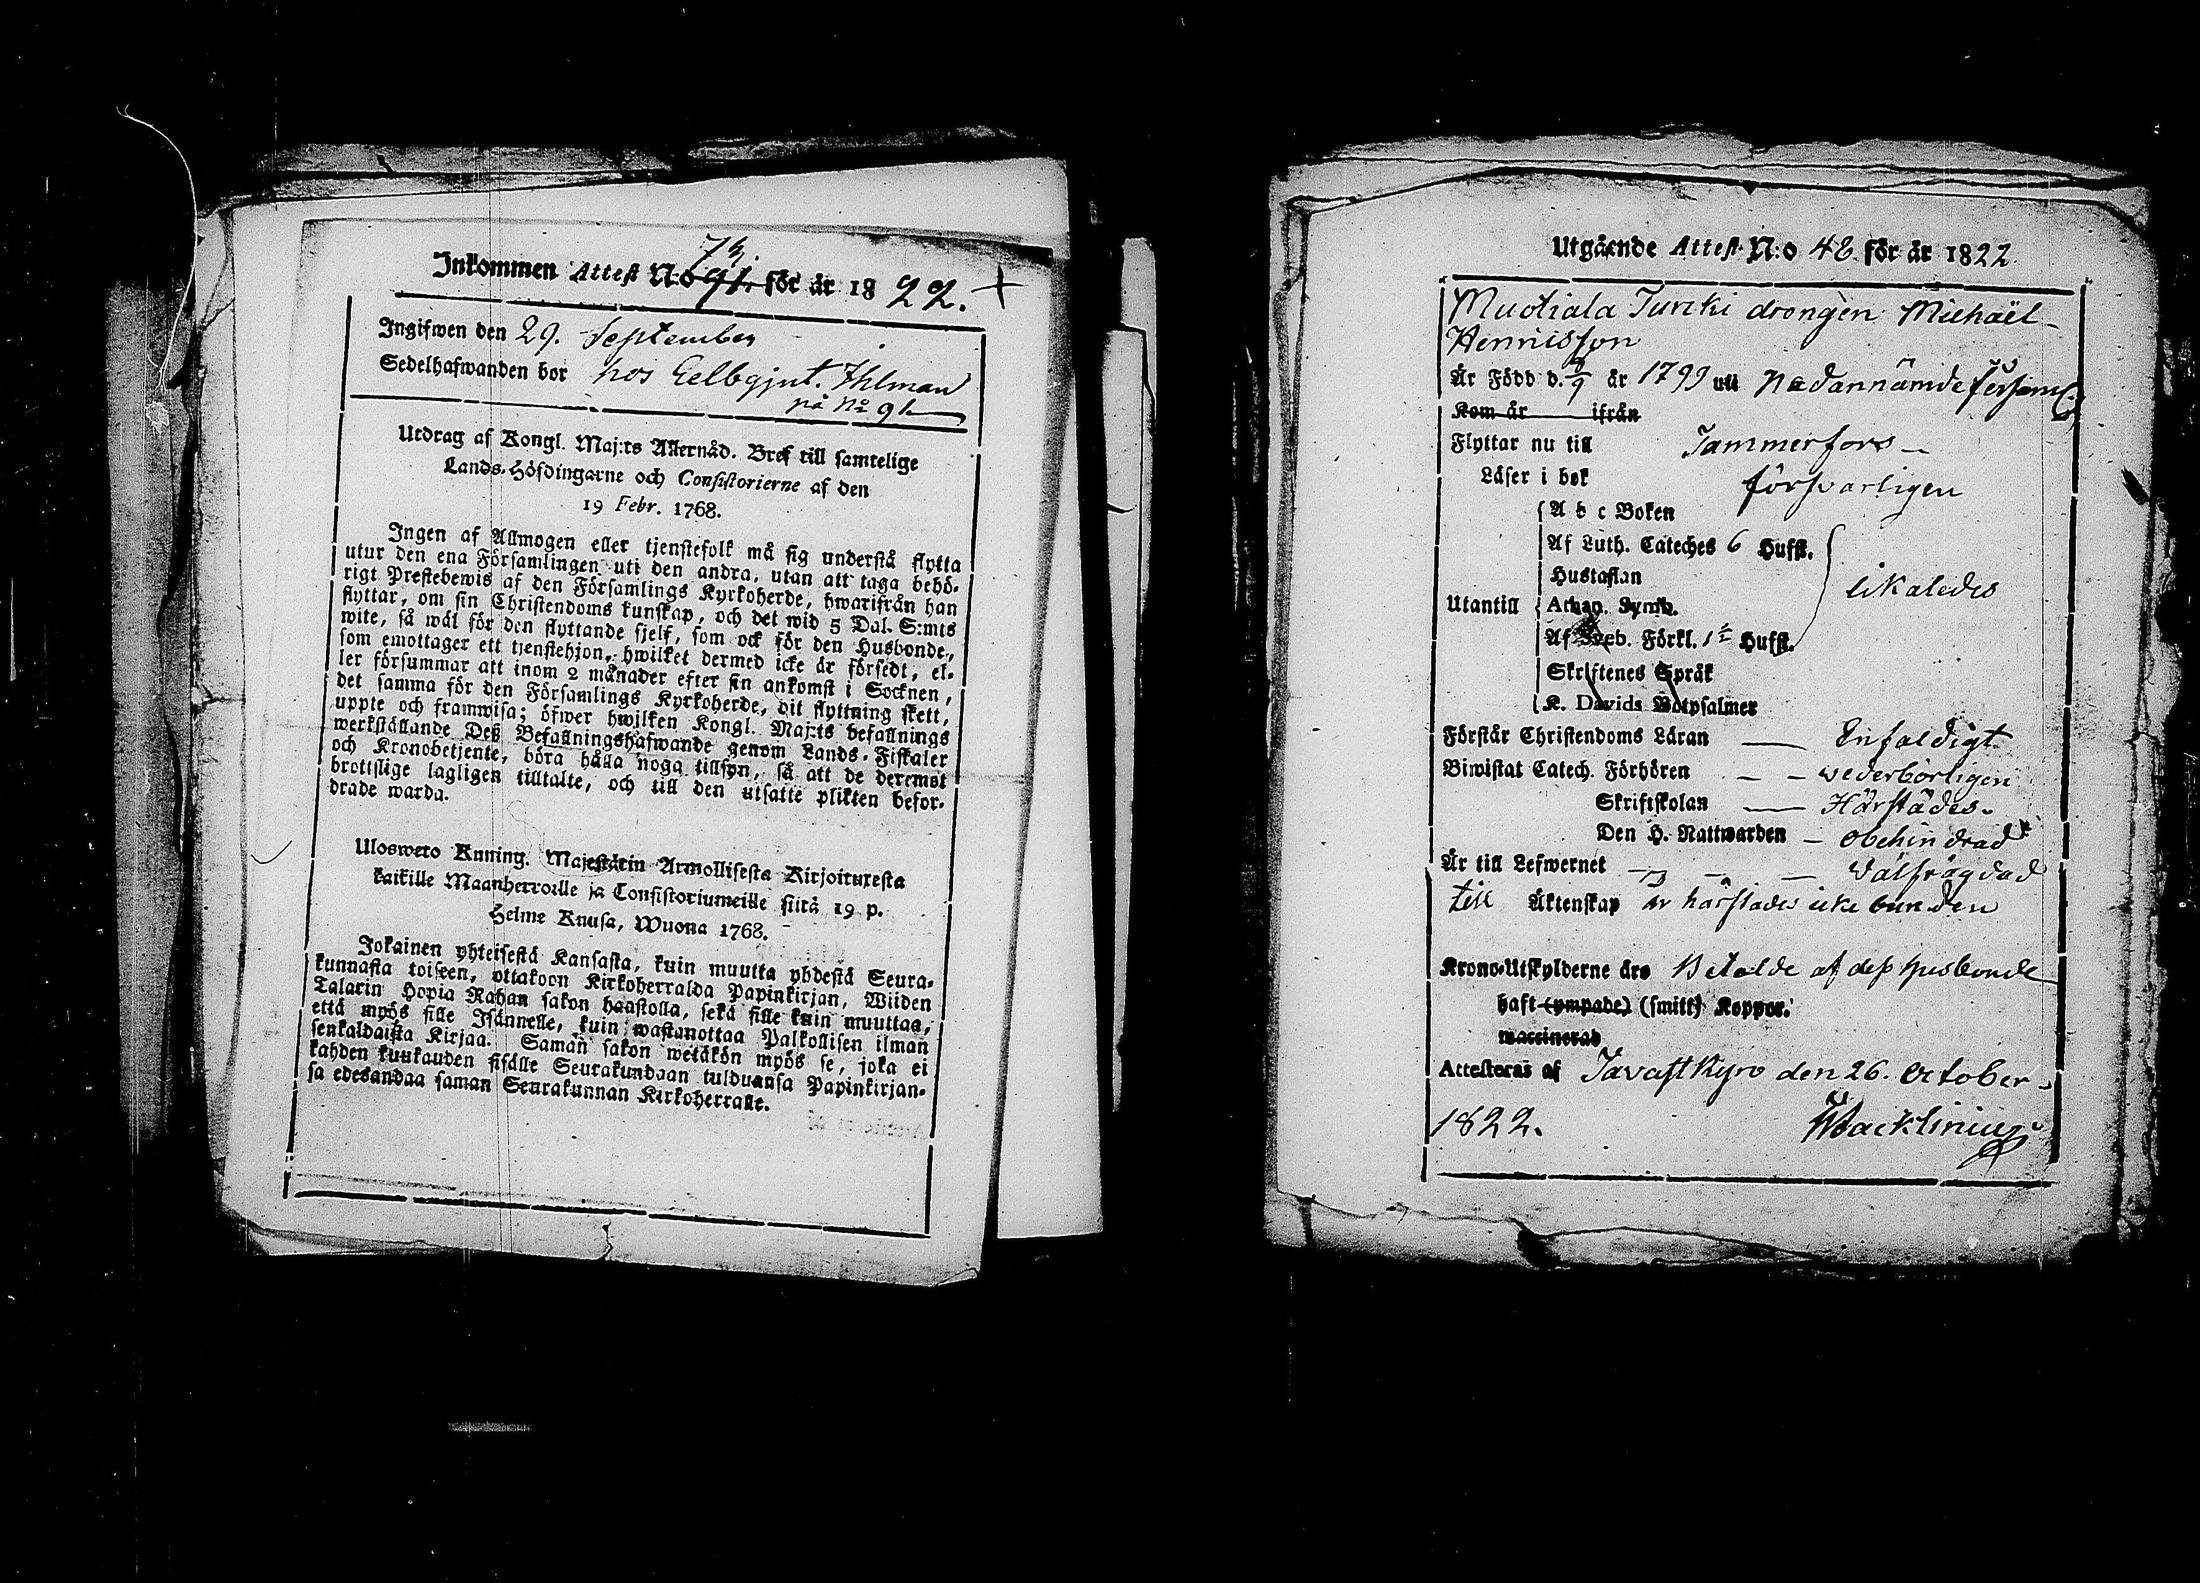 73.
Inkommen Attest N:o 91. för år 1822.
Ingifwen den 29. September
Sedelhafwanden bor hos Gelbgjut. Ihlman
på No 91.
Utdrag af Kongl. Maj:ts Allernåd. Bref till samtelige
Lands-Höfdingarne och Consistorierne af den
19 Febr. 1768.
Ingen af Allmogen eller tjenstefolk må sig understå flytta
utur den ena Församlingen uti den andra, utan att taga behö-
rigt Prestebewis af den Församlings Kyrkoherde, hwarifrån han
flyttar, om sin Christendoms kunskap, och det wid 5 Dal. S:mts
wite, så wäl för den flyttande sjelf, som ock för den Husbonde,
som emottager ett tjenstehjon, hwilket dermed icke är försedt, el-
ler försummar att inom 2 månader efter sin ankomst i Socknen,
det samma för den Församlings Kyrkoherde, dit flyttning skett,
uppte och framwisa; öfwer hwilken Kongl. Maj:ts befallnings
werkställande Deß Befallningshafwande genom Lands-Fiskaler
och Kronobetjente, böra hålla noga tillsyn, så att de deremot
brottslige lagligen tilltalte, och till den utsatte plikten befor-
drade warda.
Ulosweto Kuning. Majestätin Armollisesta Kirjoituxesta
kaikille Maanherroille ja Consistoriumeille siitä 19 p.
Helme Kuusa, Wuona 1768.
Jokainen yhteisestä Kansasta, kuin muutta yhdestä Seura-
kunnasta toiseen, ottakoon Kirkoherralda Papinkirjan, Wiiden
Talarin Hopia Rahan sakon haastolla, sekä sille kuin muuttaa,
että myös sille Isännelle, kuin wastanottaa Palkollisen ilman
senkaldaista Kirjaa. Saman sakon wetäkön myös se, joka ei
kahden kuukauden sisälle Seurakundaan tulduansa Papinkirjan-
sa edesandaa saman Seurakunnan Kirkoherralle.
Utgående Attest N:o 48 för år 1822
Muotiala Turcki drängen Michaël
Hennicsson
Är Född d. 8/9 år 1799 uti Nedannämde Församl.
Kom år ifrån
Flyttar nu till Tammerfors
Läser i bok försvarligen
A b c Boken
Af Luth. Cateches 6 Hufst.
Hustaflan
likaledes
Utantill Athan. Symb.
Af Sveb. Förkl. 1e Hufst.
Skriftenes Språk
K. Davids Botpsalmer
Förstår Christendoms Läran — Enfaldigt
Biwistat Catech. Förhören — — vederbörligen
Skriftskolan — Härstädes.
Den H. Nattwarden — obehindrad
Är till Lefwernet — — — Välfrägdad
till Äktenskap är härstädes icke bunden
Krono-Utskylderne äro Betalde af dess husbonde
haft (ympade) (smitt) Koppor.
waccinerad
Attesteras af Tavastkyro den 26. October
1822. Wacklinius